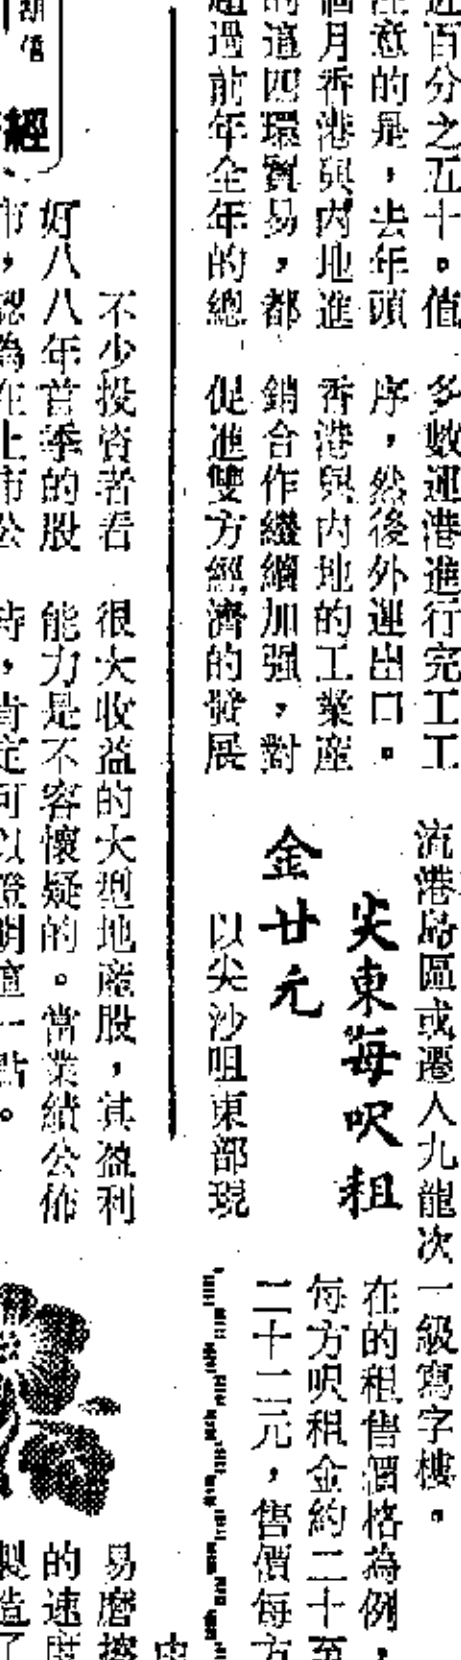 近百分之五十。值
注意的是，去年頭
個月香港與內地進
的這四環貿易，都
超過前年全年的總
多數運港進行完工工
序，然後外運出口。
香港與內地的工業產
銷合作繼續加强，對
促進雙方經濟的發展
流港島區或遷入九龍次
一級寫字樓。
尖東每呎租
金廿元
以尖沙咀東部現
在的租售價格為例，
每方呎租金約二十至
二十二元，售價每方
經
不少投資者看
好八八年首季的股
市，認為在上市公
很大收益的大型地產股，其盈利
能力是不容懷疑的。當業績公佈
時，肯定可以證明這一點。
易磨擦
的速度
製造了